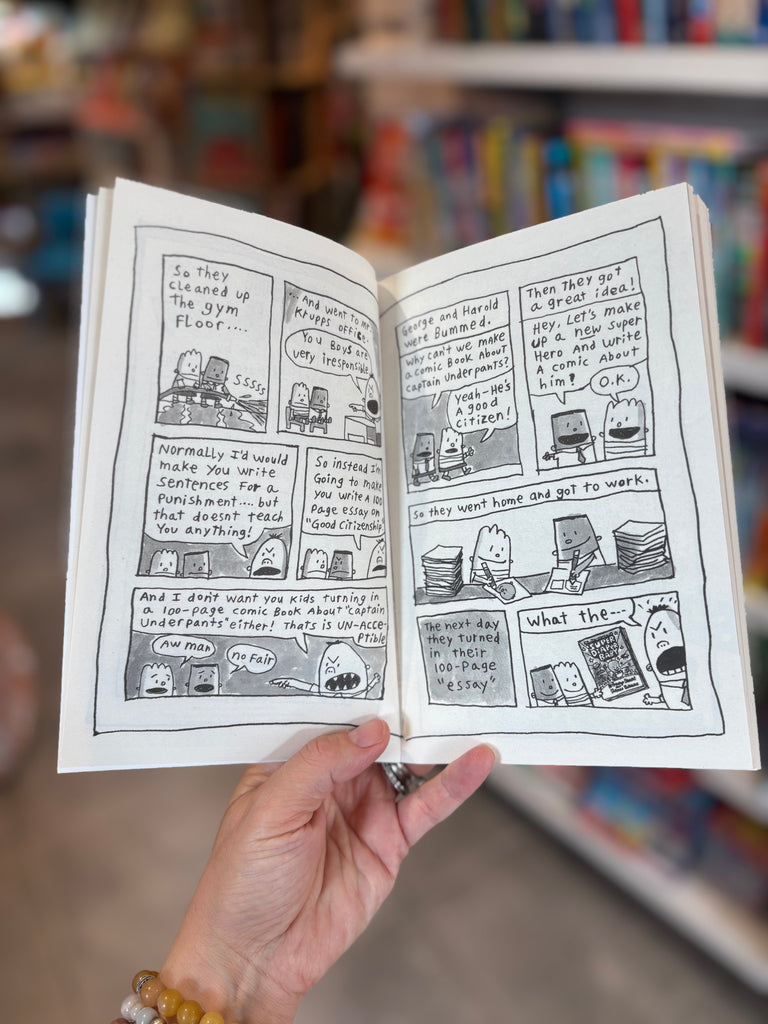 So they
cleaned up
the gym
Floor....
SSSSS
...And went to mr
Krupps office.
You Boys are
very iresponsible
Normally I'd would
make you write
Sentences for a
Punishment.... but
that doesnt teach
You anything!
So instead I'm
Going to make
you write A 100
Page essay on
"Good Citizenship
And I don't want you kids turning in
a 100-page comic Book About "captain
Underpants" either! Thats is UN-Acce-
Ptible
Aw man
no Fair
George and Harold
were Bummed.
Why can't we make
a comic Book About
captain Underpants?
Yeah-He's
A good
citizen!
Then they got
a great idea!
Hey, Let's make
up a new super
Hero And write
A comic About
him!
O.K.
So they went home and got to work.
The next day
they turned
in their
100-Page
"essay"
What the---